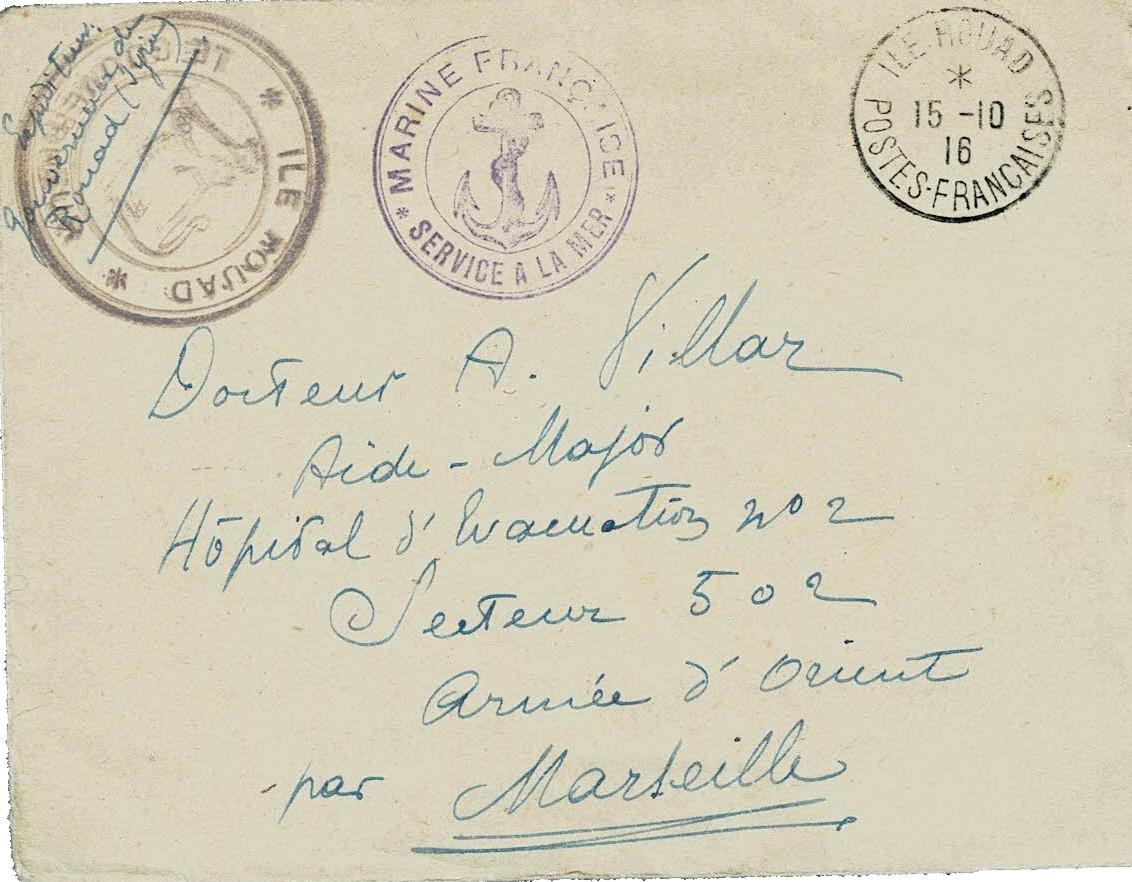 Expéditeur:
Gouverneur de
Rouad (Syrie)
* ILE ROUAD *
MARINE FRANÇAISE
* SERVICE A LA MER *
ILE ROUAD
*
15 -10
16
POSTES-FRANÇAISES
Docteur A. Villar
Aide-Major
Hôpital d'Evacuation nº 2
Secteur 502
Armée d'Orient
par Marseille